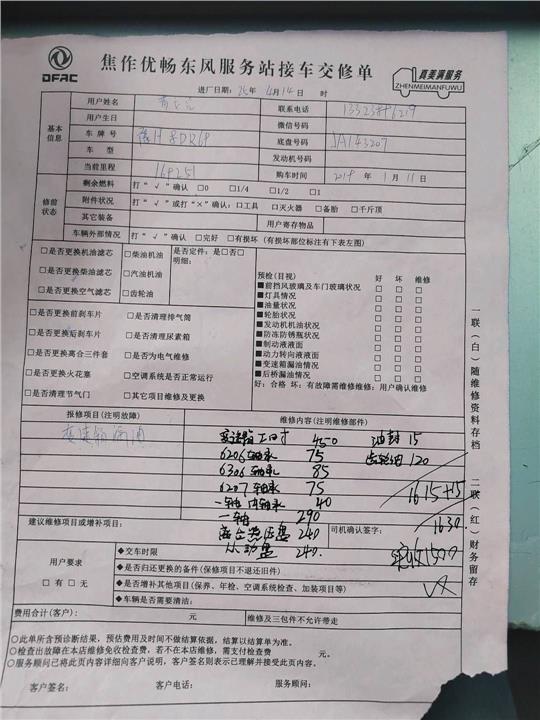 DFAC
焦作优畅东风服务站接车交修单
真美满服务
ZHENMEIMANFUWU
进厂日期: 年 4月14日 时
基本信息
用户姓名
联系电话
用户生日
微信号码
车牌号
底盘号码
车型
发动机号码
当前里程 168251
购车时间 2019年1月11日
修前状态
剩余燃料 打“√”确认 □0 □1/4 □1/2 □1
附件状况 打“√”或打“×”确认:□工具 □灭火器 □备胎 □千斤顶
其它装备 用户寄存物品
车辆外部情况 打“√”确认 □完好 □有损坏(有损坏部位标注有下表左图)
□是否更换机油滤芯 □柴油机油 是否定件:□是□否
□是否更换柴油滤芯 □汽油机油 明细:
□是否更换空气滤芯 □齿轮油
□是否更换前刹车片 □是否清理排气筒
□是否更换后刹车片 □是否清理尿素箱
□是否更换离合三件套 □是否为电气维修
□是否更换火花塞 □空调系统是否正常运行
□是否清理节气门 □其它项目维修及更换
预检(目视) 好 坏 维修
■前挡风玻璃及车门玻璃状况 □ □ □
■灯具情况 □ □ □
■油量状况 □ □ □
■轮胎状况 □ □ □
■发动机机油状况 □ □ □
■防冻防锈瓶状况 □ □ □
■制动液液面 □ □ □
■动力转向液液面 □ □ □
■变速箱漏油情况 □ □ □
■后桥漏油情况 □ □ □
好:合格 坏:有故障需维修维修:用户确认维修
报修项目(注明故障)
维修内容(注明维修部件)
变速箱漏油
变速箱工时 450 油封 15
6206轴承 75 齿轮油 120
6306轴承 85
6207轴承 75
一轴内轴承 40
一轴 290
离合器压盘 240
从动盘 240
1615+15
1630
实收1500
建议维修项目或增补项目:
司机确认签字:
用户要求
□有 □无
◆交车时限
◆是否归还更换的备件(保修项目不退还旧件)
◆是否增补其他项目(保养、年检、空调系统检查、加装项目等)
◆车辆是否需要清洁:
费用合计(客户): 元 维修及三包件不允许带走
○此单所含预诊断结果,预估费用及时间不做结算依据,结算以结算单为准。
○检查出故障在本店维修免收检查费,若不在本店维修,需支付检查费 元。
○服务顾问已将此页内容详细向客户说明,客户签名则表示已理解并接受此页内容。
客户签名: 客户电话: 服务顾问:
一联(白)随维修资料存档 二联(红)财务留存